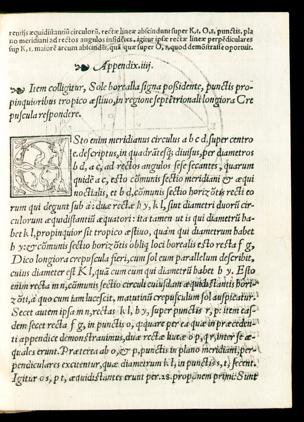 rentijs æquidistantiũ circulorũ, rectæ lineæ abscindunt super K, t. O, r. punctis, pla
no meridiani ad rectos angulos insidẽtes, igitur ipsæ rectæ lineæ perpẽdiculares
sup K, t. maiorẽ arcum abscindũt, quã quæ super O, r. quod demõstrasse oportuit.
Appendix.iiij.
Item colligitur, Sole borealia signa possidente, punctis pro-
pinquioribus tropico æstiuo, in regione septẽtrionali longiora Cre
puscula respondere.
Esto enim meridianus circulus a b c d, super centro
e, descriptus, in quadrãtesq́; diuisus, per diametros
b d, a c, ad rectos angulos sese secantes, quarum
quidẽ a c, esto cõmunis sectio meridiani & æqui
noctialis, et b d, cõmunis sectio horizõtis recti eo
rum qui degunt sub a: duæ rectæ h y, k l, sint diametri duorũ cir-
culorum æquidistantiũ æquatori: ita tamen ut is qui diametrũ ha-
bet k l, propinquior sit tropico æstiuo, quàm qui diametrum habet
h y: & cõmunis sectio horizõtis obliq́ loci borealis esto recta f g,
Dico longiora crepuscula fieri, cum sol eum parallelum describit,
cuius diameter est K l, quã cum eum qui diametrũ habet h y. Esto
enim recta m n, cõmunis sectio circuli cuiusdam æquidistantis hori-
zõti, à quo cum iam lucescit, matutinũ crepusculum sol auspicatur.
Secet autem ipsa m n, rectas k l, h y, super punctis r, p: item eas-
dem secet recta f g, in punctis o, q: quare per ea quæ in præcedẽ
ti appendice demonstrauimus, duæ rectæ lineæ o p, q r, inter se æ-
quales erunt. Præterea ab o, & p, punctis in plano meridiani, per-
pendiculares excitentur, quæ diametrum k l, in punctis s, t, secent.
Igitur o s, p t, æquidistantes erunt per .28. proponem primi: Sunt